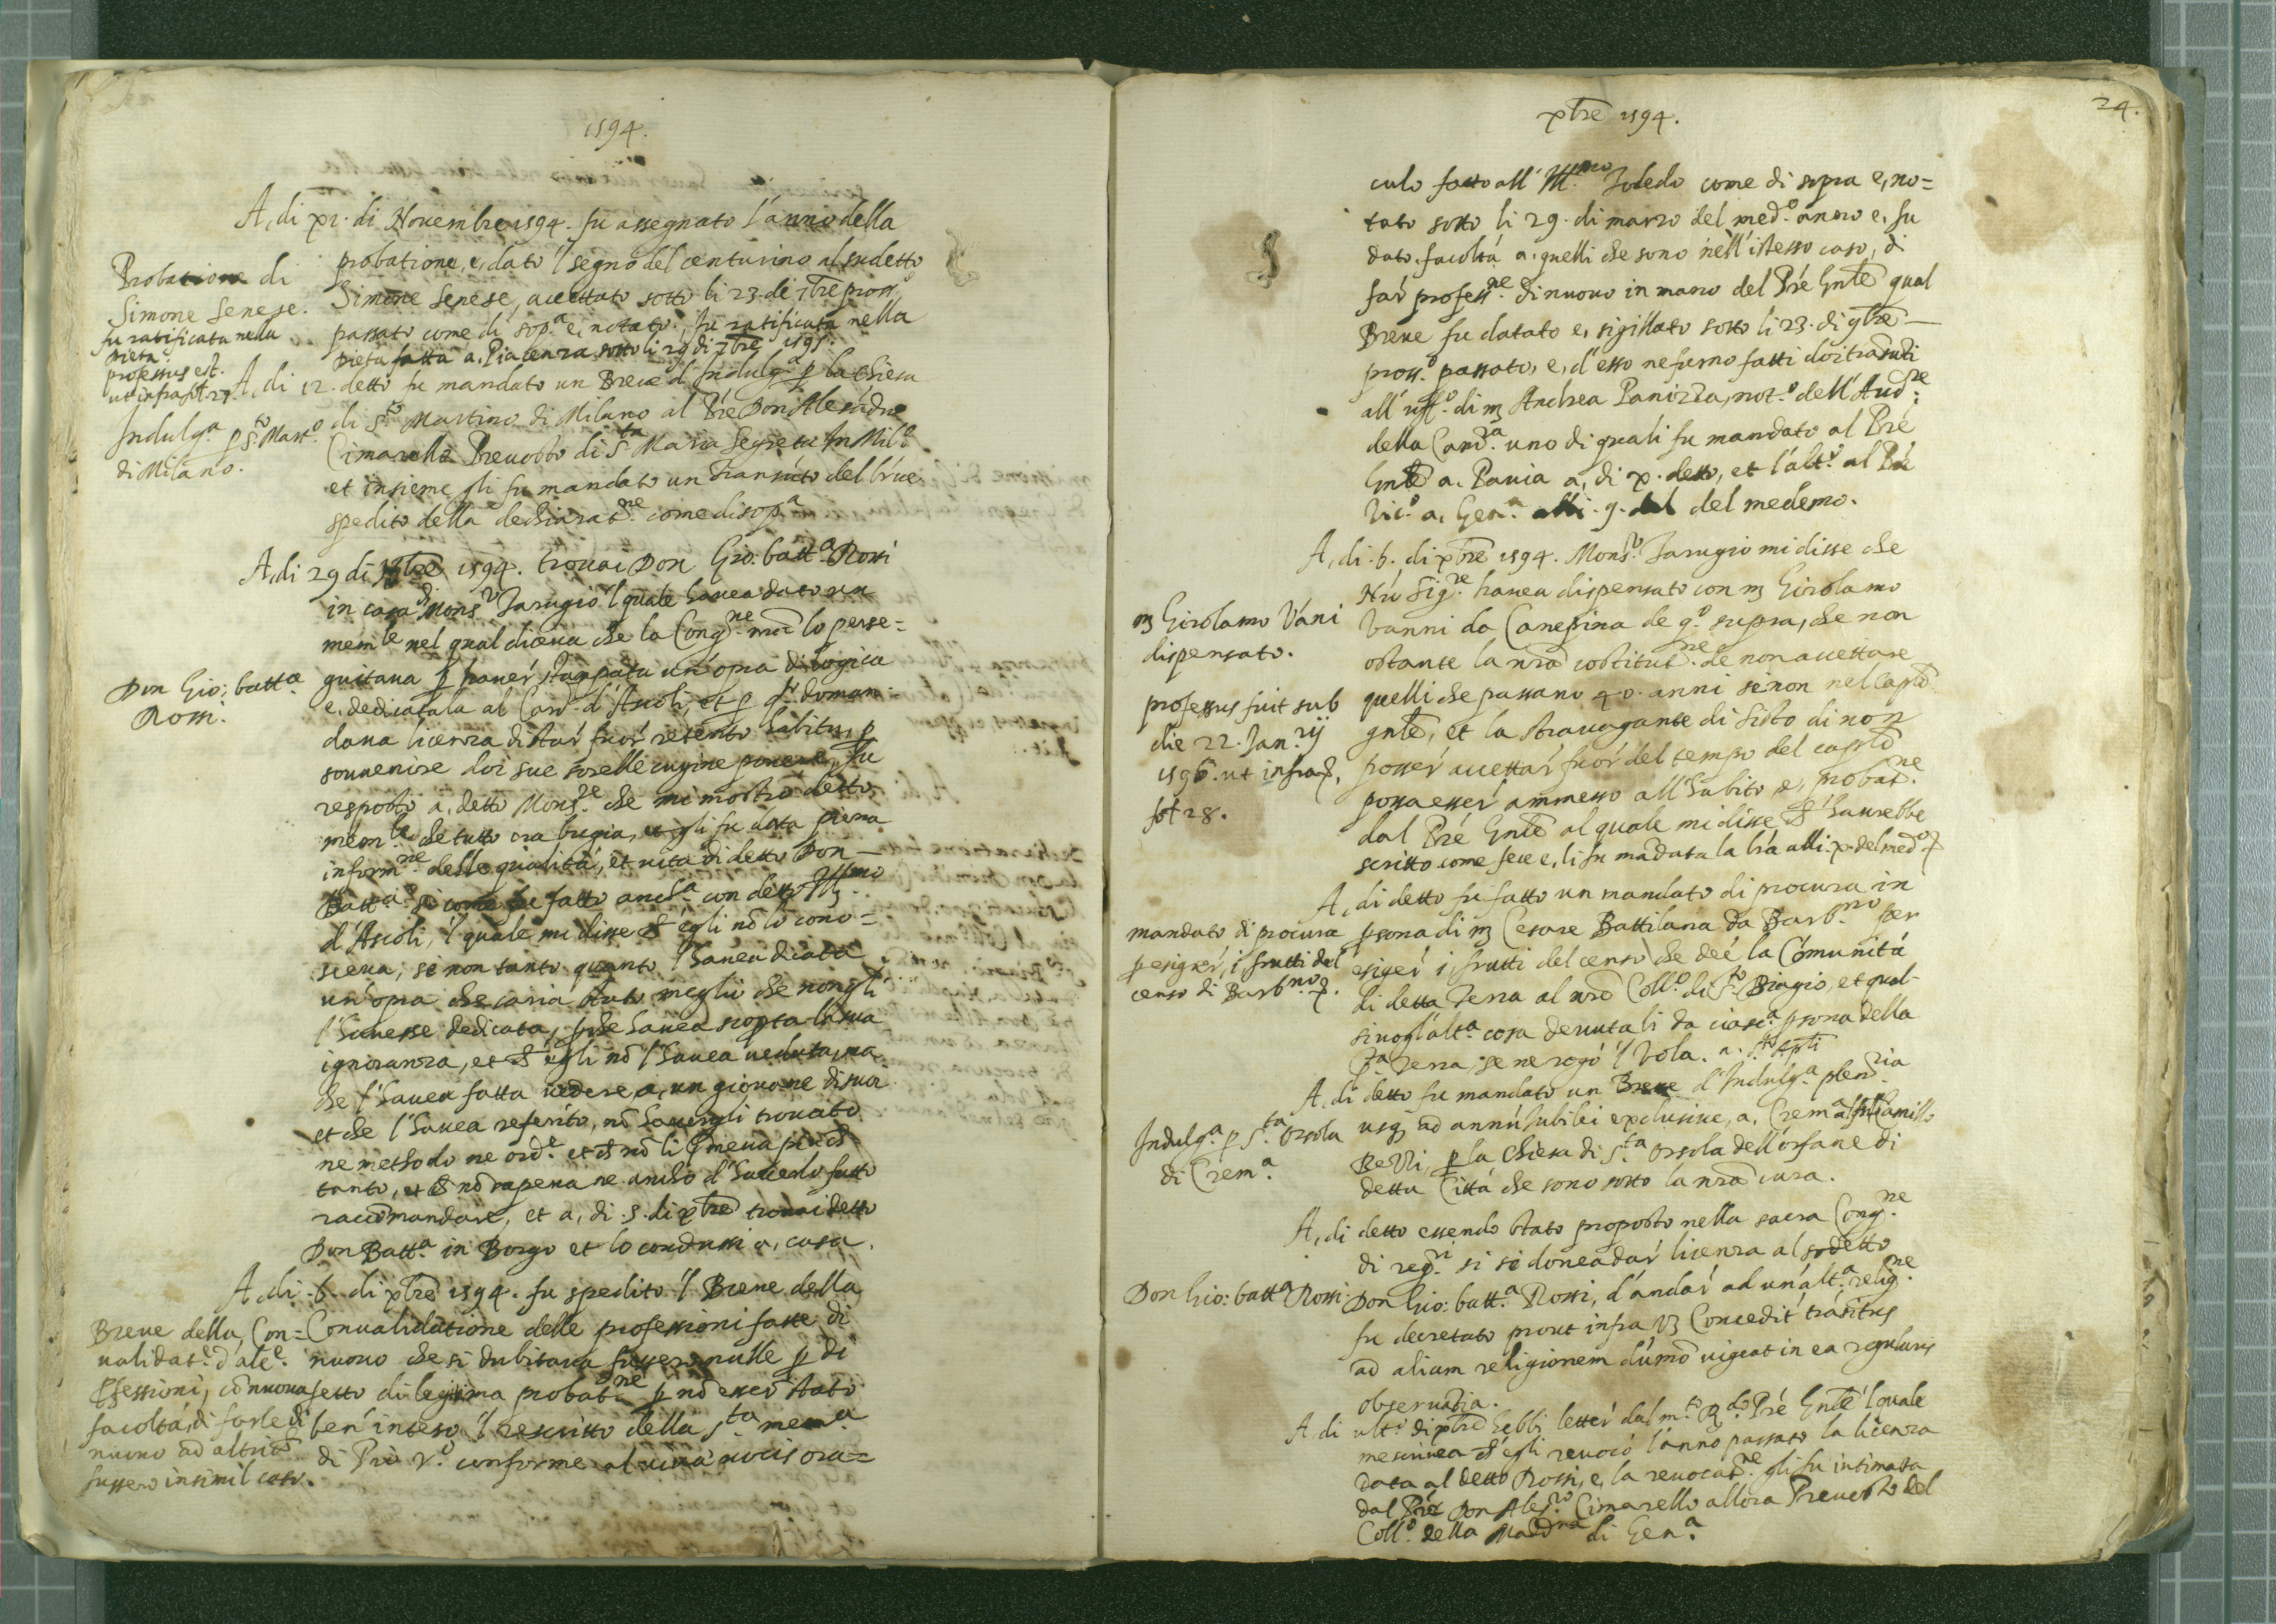 1594.
A, di xi. di Novembre 1594. fu assegnato l'anno della
probatione, e, dato 'l segno del centurino al sudetto
Simone Senese, accettato sotto li 23. di 7bre pross.o
passato come di sop.a e, notato. fu ratificata nella
Dieta fatta a, Piacenza sotto li 29 di 7bre 1595.
Probatione di
Simone Senese.
fu ratificata nella
Dieta.
professus est.
ut infra fol. 27
A, di 12. detto fu mandato un Breve d'Indulg.a p la Chiesa
di S.to Martino di Milano al Pre Don Alesádro
Cimarello Prevosto di S.ta Maria Segreta In Mil.o
et insieme gli fu mandato un transúto del brúe
spedito della dechiarat.ne come di sop.a
Indulg.a p S.to Mart.o
di Milano.
A, di 29 di 9bre 1594. trovai Don Gio: batt.a Rossi
in casa di Mons.r Tarugio 'l quale havea dato un
mem.le nel qual diceva che la Cong.ne nrã lo perse=
guitava p haver stampata un'opra di logica
e, dedicatala al Card. d'Ascoli, et p q.o doman=
dava licenza di star fuor retento habitu, p
sovvenire doi sue sorelle cugine povere, fu
resposto a, detto Mons.re che mi mostrò detto
mem.le che tutto era bugia, et gli fu data piena
inform.ne delle qualità, et vita di detto Don
Batt.a si come fatto anch.a con detto Ill.mo
d'Ascoli, 'l quale mi disse ch' egli nõ lo cono=
sceva, se non tanto quanto l'havea dicata
un'opra che saria stato meglio che non gli
l'havesse dedicata, pche havea scopta la sua
ignoranza, et ch' egli nõ l'havea veduta, ma
che l'havea fatta vedere, a, un giovane di suoi
et che l'havea referito, nõ havergli trovato
ne methodo ne ord.e et ch nõ li premeva piu ch
tanto, et ch nõ sapeva ne ancho d'haverlo fatto
raccõmandare, et a, di .5. di xbre trovai detto
Don Batt.a in Borgo et lo condussi a, casa.
Don Gio: batt.a
Rossi.
A, di .6. di xbre 1594. fu spedito 'l Breve della
Convalidatione delle professioni fatte di
nuovo che si dubitava fussero nulle p di
fetto di legitima probat.ne p nõ esser stato
ben' inteso 'l rescritto della S.ta mem.a
di Pio V.o conforme al viva vocis ora=
Breve della Con=
validat.e d'alc.e
Pfessioni, cõ nuova
facoltá, di farle di
nuovo ad altri ch
fussero in simil caso.
24.
xbre 1594.
culo fatto all' Ill.mo Toledo come di sopra e, no=
tato sotto li 29. di marzo del med.o anno e, fu
dato, facoltá a, quelli che sono nell'istesso caso, di
far profess.ne di nuovo in mano del Pré Gnle qual
Breve fu datato e, sigillato sotto li 23. di 9bre
pross.o passato, e, d'esso ne furno fatti doi trãsuti
all' uff.o di m Andrea Panizza, not.o dell'Aud.re
della Cam.a uno di quali fu mandato al Pré
Gnle a, Pavia a, di x. detto, et l'alt.o al Pré
Vic.o a, Gen.a alli .9. del medemo.
A, di .6. di xbre 1594. Mons.r Tarugio mi disse che
Nro Sig.re havea dispensato con m Girolamo
Vanni da Canepina de q.o supra, che non
ostante la nrã costitut.ne de non accettare
quelli che passano 40. anni se non nel Caplo
gnle, et la stravagante di Sisto di non
posser accettar fuor del tempo del caplo
possa esser ammesso all'habito e, probat.ne
dal Pré Gnle al quale mi disse ch' haurebbe
scritto come fece e, li fu mãdata la lrá alli x. del med.o
m Girolamo Váni
dispensato.
professus fuit sub
die 22. Jan.rij
1596. ut infra,
fol 28.
A, di detto fu fatto un mandato di procura in
psona di m Cesare Battilana da Barb.no per
esiger i, frutti del censo che deé la Cõmunitá
di detta Terra al nrõ Coll.o di S.to Biagio, et qual
sivogl'alt.a cosa devuta li da ciasc.a psona della
d.a Terra, se ne rogó 'l Vola. a. S.ti Apli
mandato di procura
p esiger, i frutti del
censo di Barb.no
A, di detto fu mandato un Breve d'Indulg.a plen.ria
usq; ad annú Jubilei exclusive, a, Crem.a al S.r Camillo
Benvi, p la Chiesa di S.ta Orsola dell'orfane di
detta Cittá che sono sotto la nrã cura.
Indulg.a p S.ta Orsola
di Crem.a
A, di detto essendo stato proposto nella sacra Cong.ne
di reg.ri si si dovea dar licenza al sodetto
Don Gio: batt.a Rossi, d'andar ad un'alt.a relig.ne
fu decretato prout infra Concedit trásitus
ad aliam religionem dúmõ vigeat in ea regularis
observátia.
Don Gio: batt.a Rossi
A di ult.o di xbre hebbi letter dal m.to R.do Pré Gnle 'l quale
me scrivea ch' egli revocó l'anno passato la licenza
data al detto Rossi, e, la revocat.ne gli fu intimata
dal Pré Don Ales.ro Cimarello allora Prevosto del
Coll.o della Mad.na di Gen.a